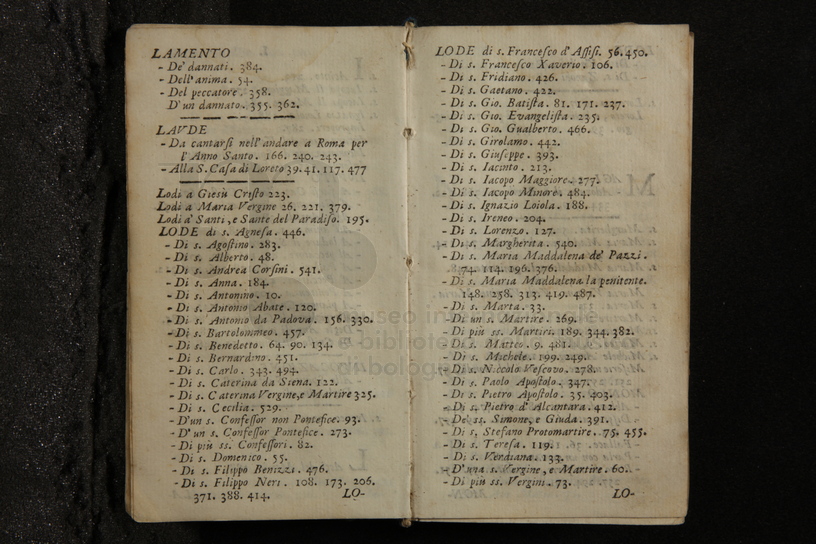 LAMENTO
- De' dannati. 384.
- Dell' anima. 54.
- Del peccatore. 358.
D'un dannato. 355. 362.
LAVDE
- Da cantarsi nell' andare a Roma per
l' Anno Santo. 166. 240. 243.
- Alla S. Casa di Loreto 39. 41. 117. 477
Lodi a Giesù Cristo 223.
Lodi a Maria Vergine 26. 221. 379.
Lodi a' Santi, e Sante del Paradiso. 195.
LODE di s. Agnesa. 446.
- Di s. Agostino. 283.
- Di s. Alberto. 48.
- Di s. Andrea Corsini. 541.
- Di s. Anna. 184.
- Di s. Antonino. 10.
- Di s. Antonio Abate. 120.
- Di s. Antonio da Padova. 156. 330.
- Di s. Bartolommeo. 457.
- Di s. Benedetto. 64. 90. 134.
- Di s. Bernardino. 451.
- Di s. Carlo. 343. 494.
- Di s. Caterina da Siena. 122.
- Di s. Caterina Vergine, e Martire 325.
- Di s. Cecilia. 529.
- D'un s. Confessor non Pontefice. 93.
- D' un s. Confessor Pontefice. 273.
- Di più ss. Confessori. 82.
- Di s. Domenico. 55.
- Di s. Filippo Benizzi. 476.
- Di s. Filippo Neri. 108. 173. 206.
371. 388. 414.
LO-
LODE di s. Francesco d' Assisi. 56. 450.
- Di s. Francesco Xaverio. 106.
- Di s. Fridiano. 426.
- Di s. Gaetano. 422.
- Di s. Gio. Batista. 81. 171. 237.
- Di s. Gio. Evangelista. 235.
- Di s. Gio. Gualberto. 466.
- Di s. Girolamo. 442.
- Di s. Giuseppe. 393.
- Di s. Iacinto. 213.
- Di s. Iacopo Maggiore. 277.
- Di s. Iacopo Minore. 484.
- Di s. Ignazio Loiola. 188.
- Di s. Ireneo. 204.
- Di s. Lorenzo. 127.
- Di s. Margherita. 540.
- Di s. Maria Maddalena de' Pazzi.
74. 114. 196. 376.
- Di s. Maria Maddalena la penitente.
148. 258. 313. 419. 487.
- Di s. Marta. 33.
- Di un s. Martire. 269.
- Di più ss. Martiri. 189. 344. 382.
- Di s. Matteo. 9. 481.
- Di s. Michele. 199. 249.
- Di s. Niccolò Vescovo. 278.
- Di s. Paolo Apostolo. 347.
- Di s. Pietro Apostolo. 35. 403.
- Di s. Pietro d' Alcantara. 412.
- De' ss. Simone, e Giuda. 391.
- Di s. Stefano Protomartire. 75. 455.
- Di s. Teresa. 119.
- Di s. Verdiana. 133.
- D'una s. Vergine, e Martire. 60.
- Di più ss. Vergini. 73.
LO-